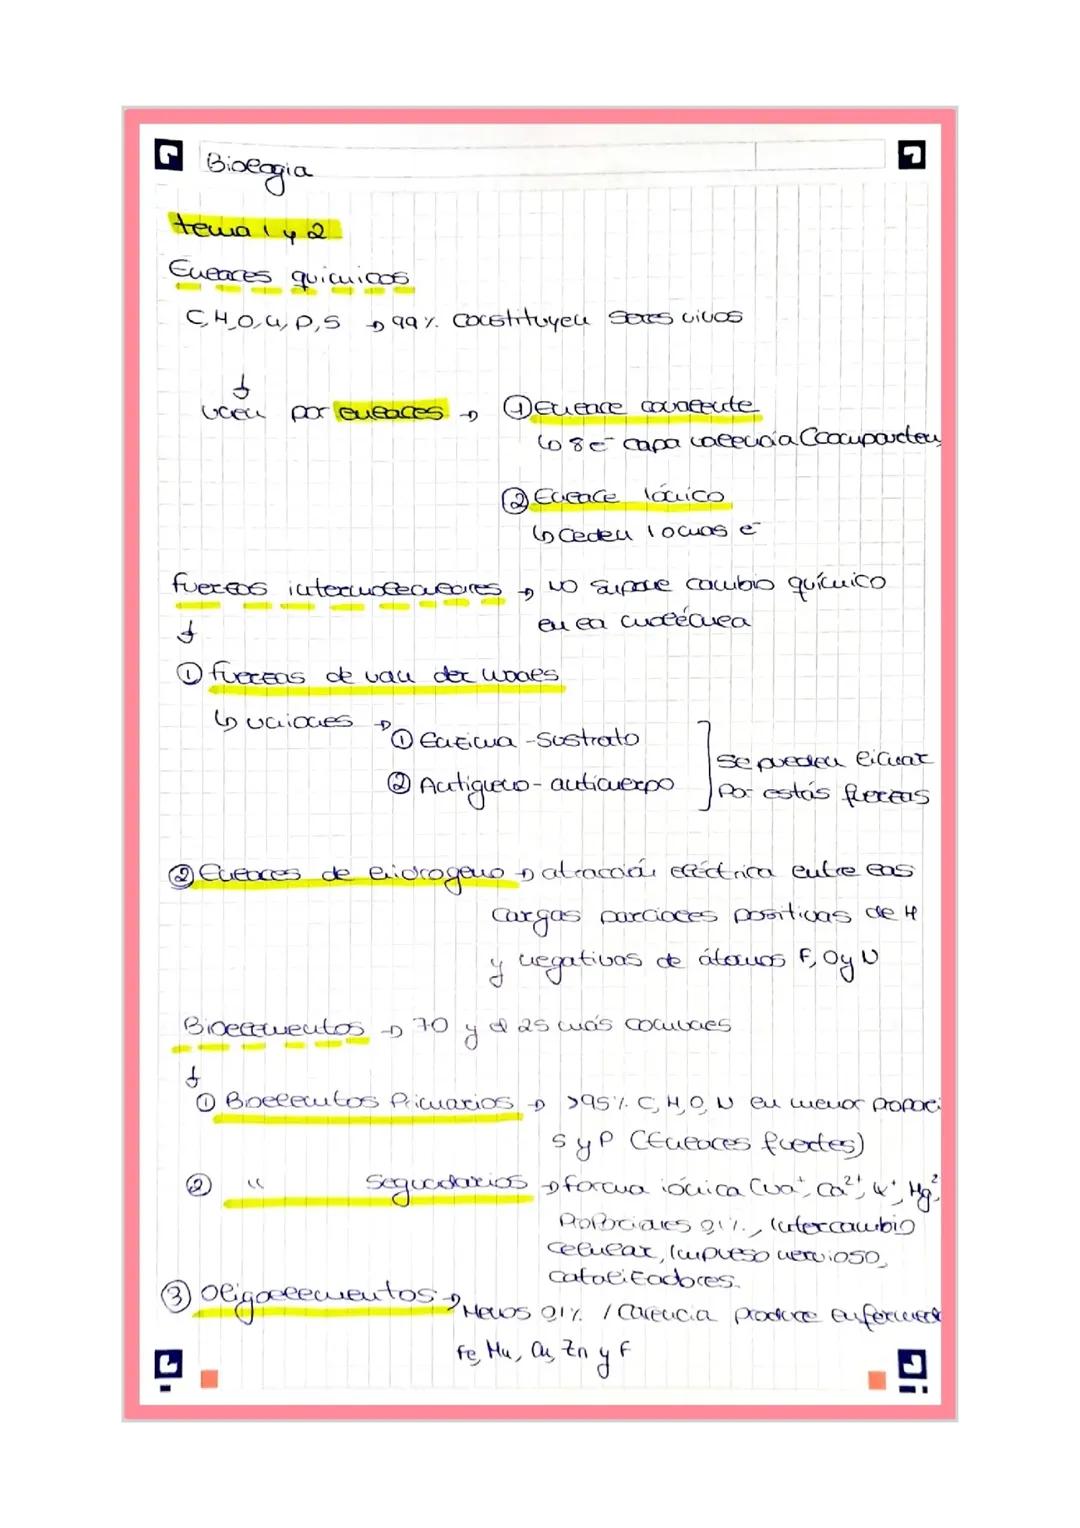 Biología
tema 1 y 2
Enlaces químicos
C, H, O, N, P, S → 99% Constituyen seres vivos
↓
unen por enlaces → ① Enlace covalente
↳ 8e⁻ capa valencia (comparten
② Enlace iónico
↳ Ceden 1 o más e⁻
fuerzas intermoleculares → NO supone cambio químico
↓ en la molécula
① fuerzas de van der waals
↳ uniones → ① Enzima - Sustrato
② Antígeno - anticuerpo
Se pueden eliminar
por estás fuerzas
② Enlaces de hidrogeno → atracción eléctrica entre las
cargas parciales positivas de H
y negativas de átomos F, O y N
Bioelementos → 70 y 25 más comunes
↓
① Bioelementos Primarios → >95% C, H, O, N en menor proporci
S y P (Enlaces fuertes)
② " Segundarios → forma iónica (Na⁺, Ca²⁺, K⁺, Mg²
Proporciones 0,1%, Intercambio
celular, Impulso nervioso,
catalizadores.
③ Oligoelementos → Menos 0,1% / Carencia produce enfermed
Fe, Mn, Cu, Zn y F